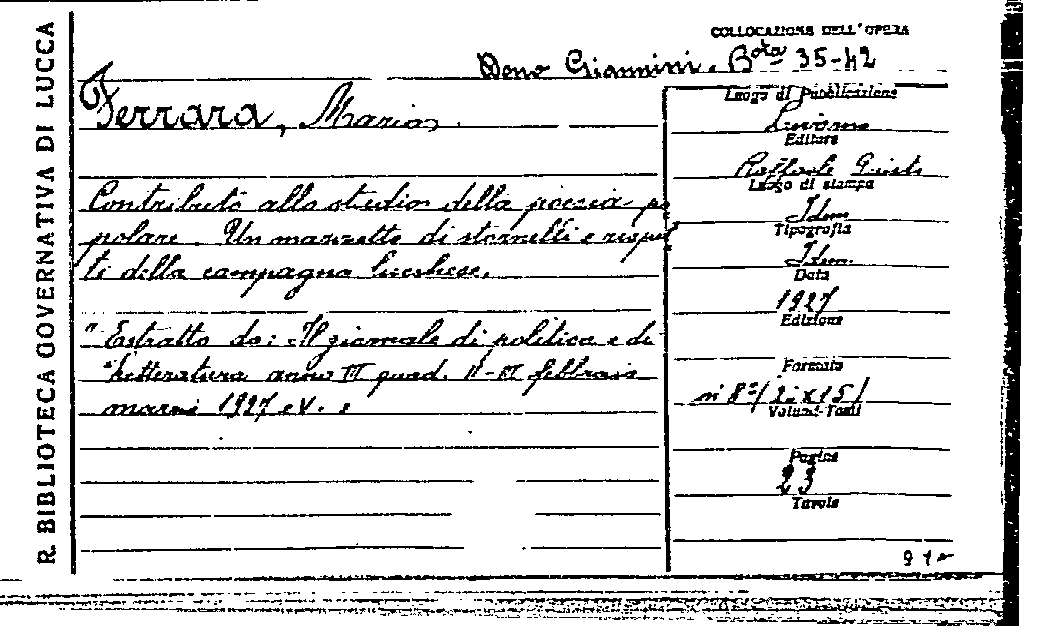 R. BIBLIOTECA GOVERNATIVA DI LUCCA
COLLOCAZIONE DELL'OPERA
Dono Giannini. B.ota 35-42
Ferrara, Mario.
Contributo allo studio della poesia po
polare. Un mazzetto di stornelli e rispet
ti della campagna lucchese.
"Estratto da: Il giornale di politica e di
"letteratura anno III quad. II-III febbraio
marzo 1927
Luogo di Pubblicazione
Livorno
Editore
Raffaele Giusti
Luogo di stampa
Idem
Tipografia
Idem.
Data
1927
Edizione
Formato
in 8°
Volumi-Tomi
Pagine
23
Tavole